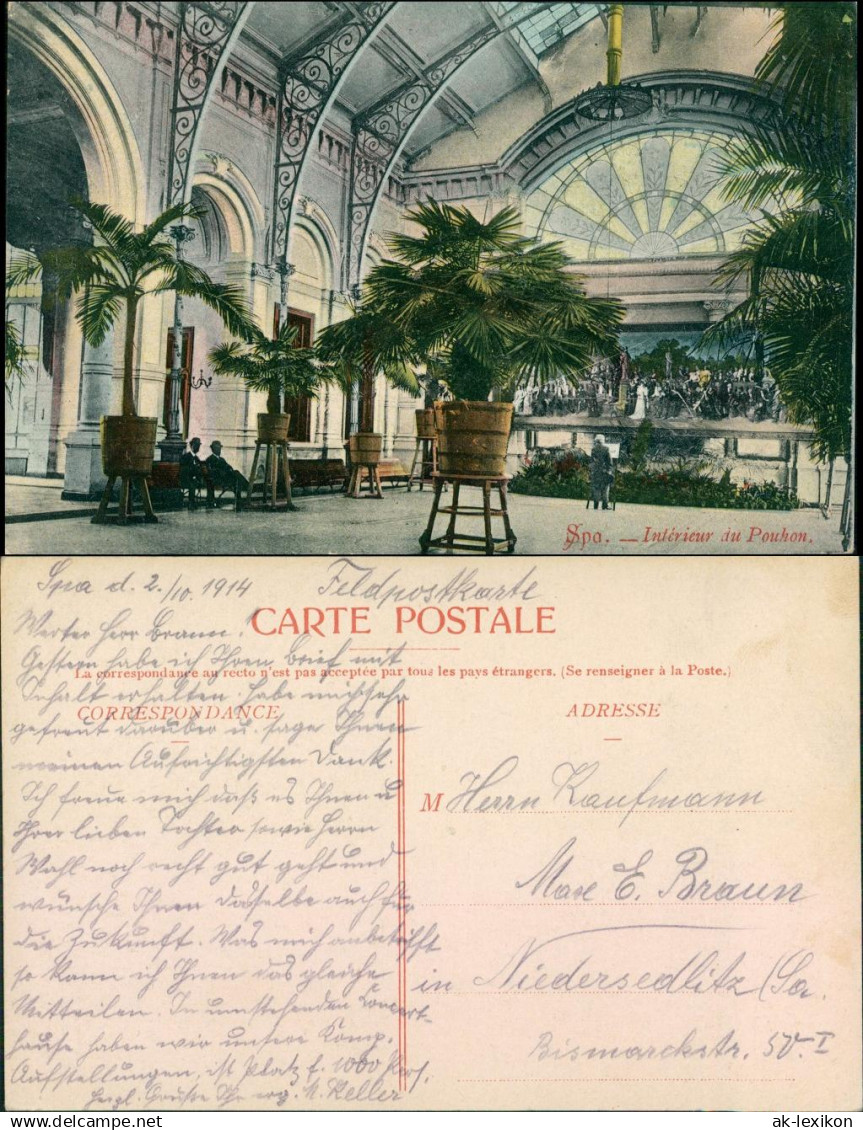 Spa. — Intérieur du Pouhon.
Spa d. 2./10. 1914 Feldpostkarte
CARTE POSTALE
Werter Herr Braun!
Gestern habe ich Ihren Brief mit
La correspondance au recto n'est pas acceptée par tous les pays étrangers. (Se renseigner à la Poste.)
Inhalt erhalten. Habe mich sehr
CORRESPONDANCE
ADRESSE
gefreut darüber u. sage Ihnen
meinen Aufrichtigsten Dank.
Ich freue mich daß es Ihnen u
Ihrer lieben Tochter sowie Herrn
Wahl noch recht gut geht und
wünsche Ihnen dasselbe auch für
die Zukunft. Was mich anbetrifft
so kann ich Ihnen das gleiche
Mitteilen. In umstehenden Konzert-
hause haben wir unsere Komp.
Aufstellungen, ist Platz f. 1000 Pers.
Herzl. Grüße Ihr erg. M. Keller
M Herrn Kaufmann
Max E. Braun
in Niedersedlitz (Sa.
Bismarckstr. 50. I
ak-lexikon